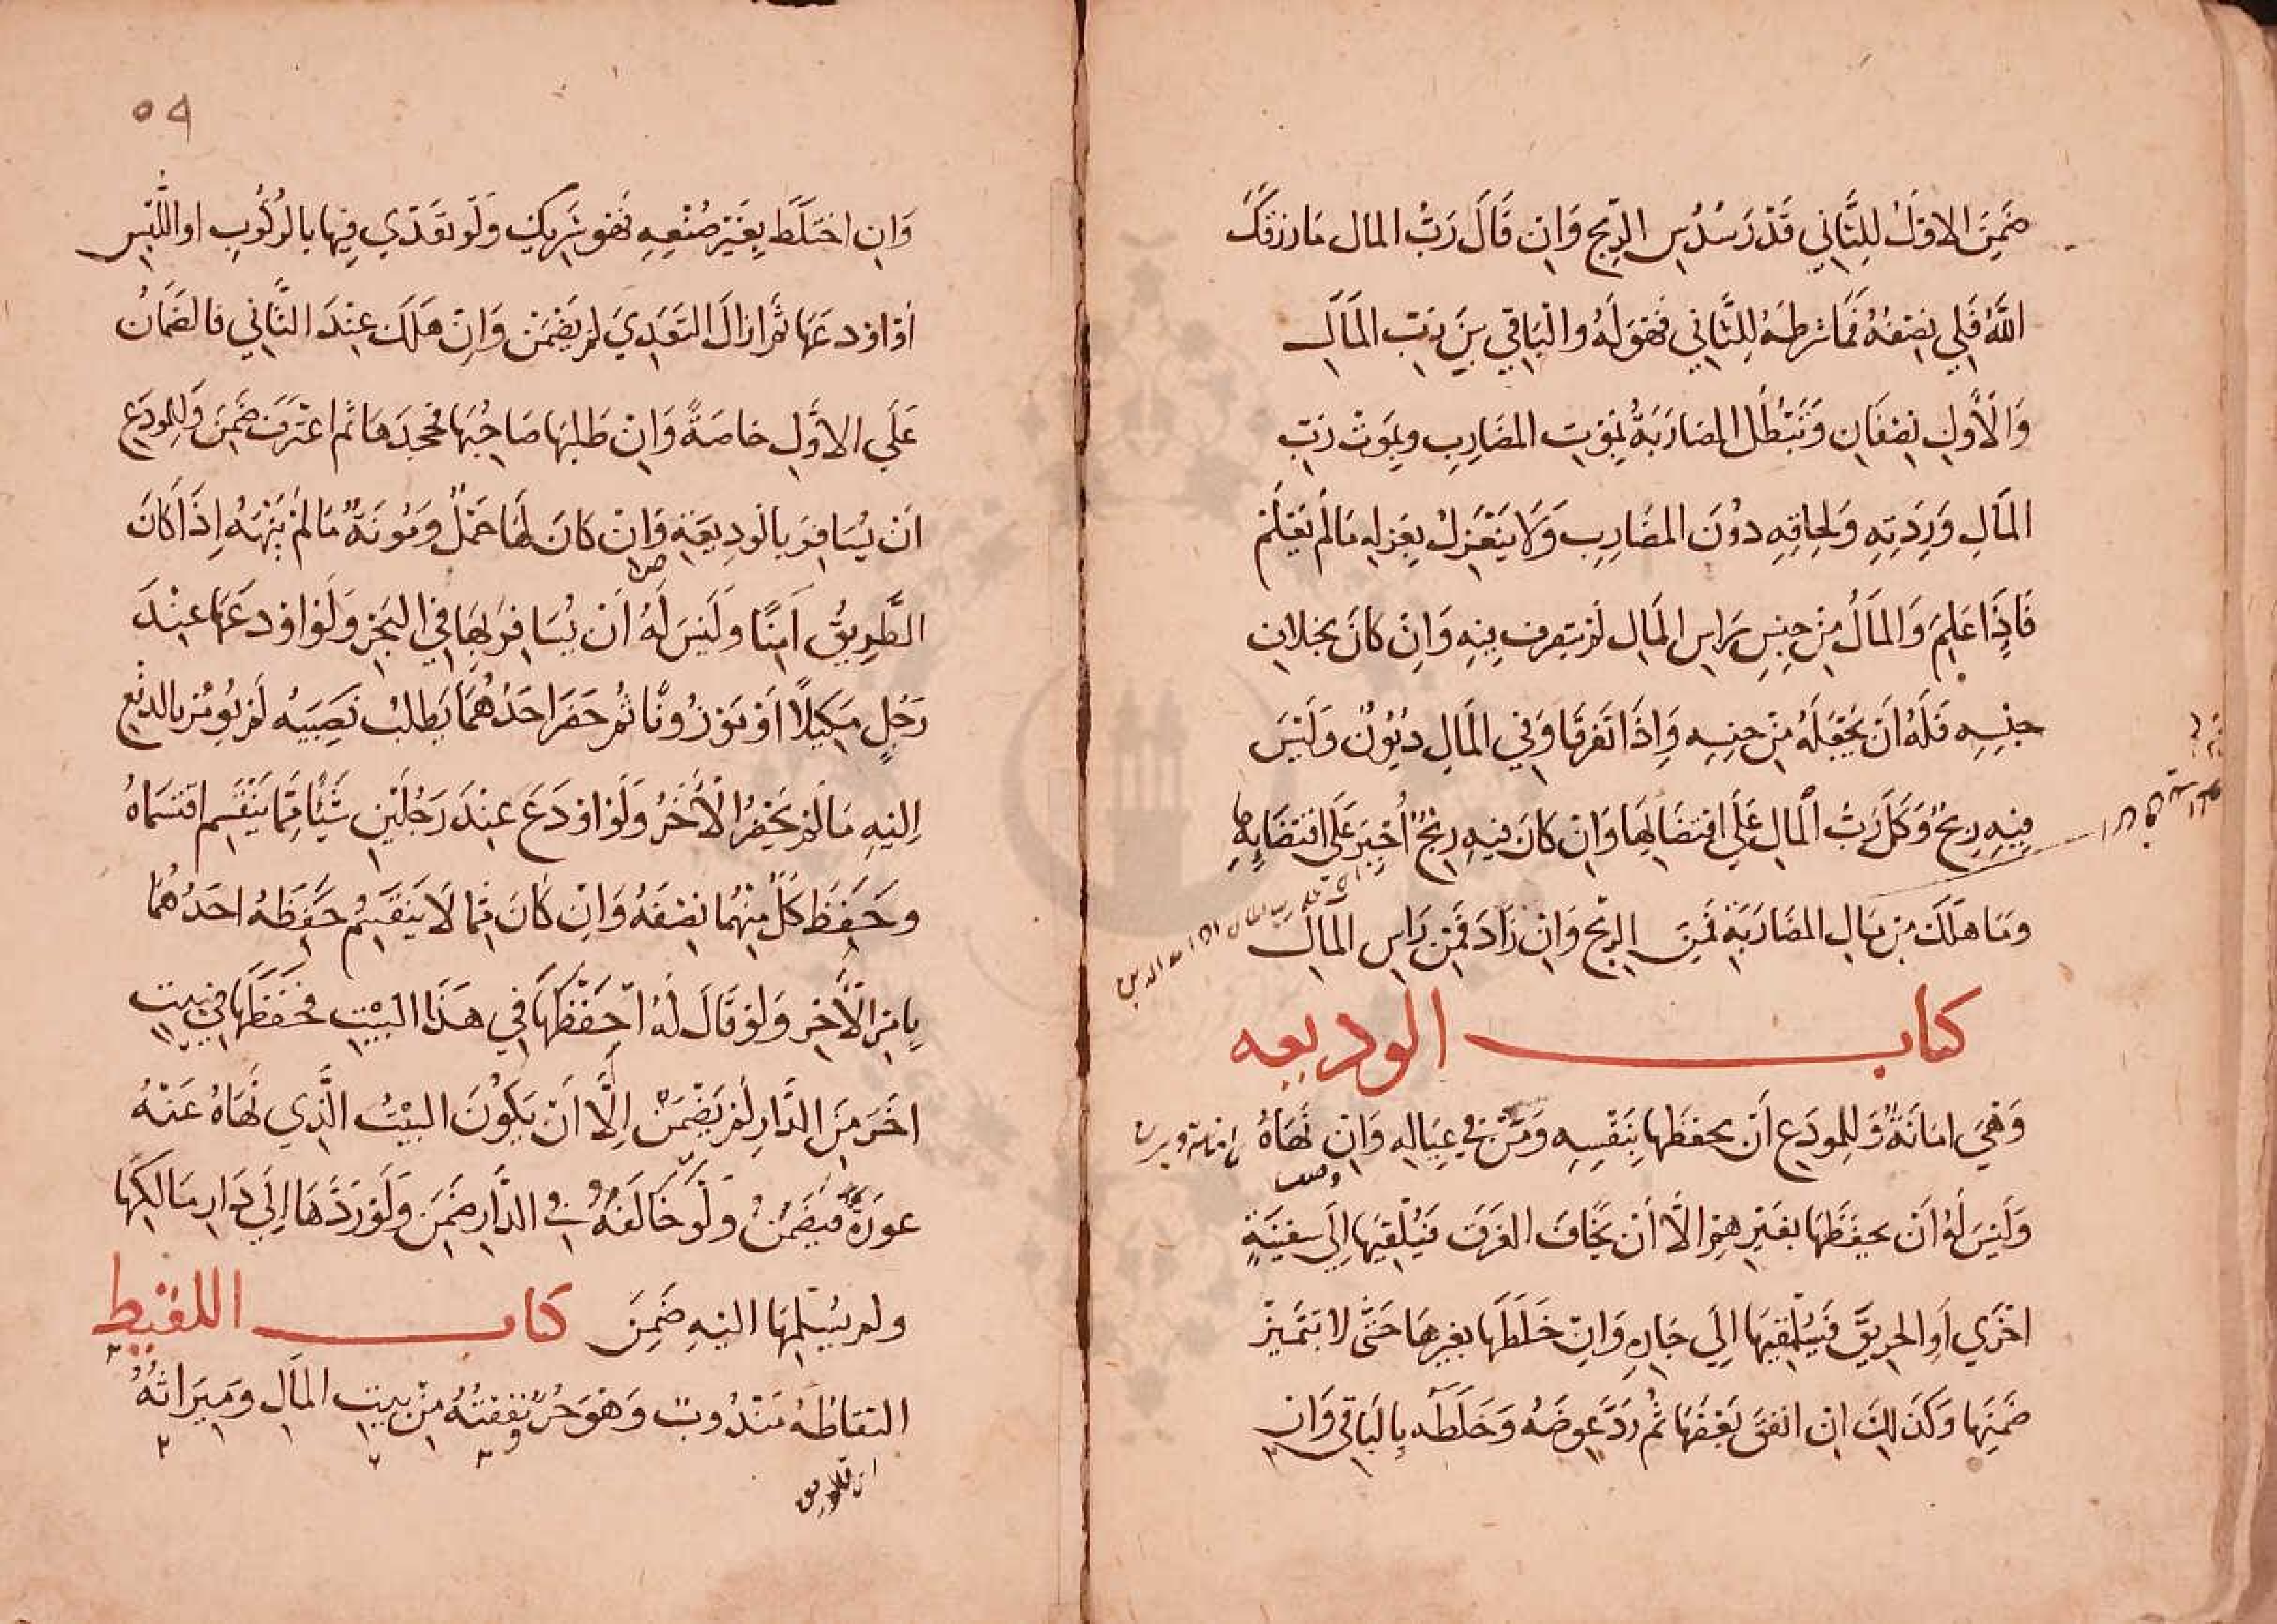 ضَمِنَ الاوّلُ للِثَّاني قَدْرَ سُدُسِ الرِّبحِ وَاِن قَالَ رَبُّ المال مَا رزقكَ
اللَّهُ فَلي نِصْفُهُ فَمَا شرطَهُ لِلثَّاني فَهوَ لَهُ والْبَاقي بينَ رَبِّ المَالِ
وَالْاَوَّلِ نِصْفَانِ وَتَبْطُلُ المضَارَبَةُ بمَوْتِ المضَارِبِ وبمَوْتِ رَبِّ
المَالِ وَرِدَّتِهِ وَلِحاقِهِ دوُنَ المضَارِبِ وَلَا يَنْعَزِلُ بِعَزلِهِ مَا لَم يَعْلَمْ
فَاِذَا عَلِمَ وَالمَالُ مِنْ جِنسِ رَاسِ المَالِ لَم يتصرف فِيهِ وَاِنْ كانَ بخلافِ
جنْسِهِ فَلَهُ اَنْ يَجْعَلَهُ مِنْ جنسِهِ وَاِذَا تفَرقَا وَفي المَالِ ديُوُنٌ وَلَيْسَ
فِيْهِ رِبحٌ وَكَّلَ رَبَّ المالِ عَلَي اقتضَائِهَا وَاِنْ كَانَ فيهِ رِبْحٌ اُجْبِرَ عَلَي اقتضَائِهَا
وَمَا هَلَكَ مِنْ مَالِ المضَارَبَةِ فَمِنَ الرِّبْحِ وَاِنْ زَادَ فَمِنْ رَاسِ المَالِ
كتاب الوديعه
وَهْيَ امَانَةٌ وَللِمودَعِ اَنْ يحفظَها بِنَفْسِهِ وَمَنْ في عِيَالهِ وَاِن نَهَاهُ
وَلَيْسَ لهُ اَنْ يحفظَها بغَيْرِهمْ الَّا اَنْ يَخَافَ الغَرَقَ فَيُلْقِيهَا اِلَي سفينَةٍ
اخْرَي اَوِ الحريقَ فَيُسْلِمَهَا اِلَي جَارِهِ وَاِنْ خَلَطَهَا بغيرِهَا حَتَّى لا تتَمَيَّزْ
ضَمِنَهَا وَكَذلِكَ اِن انفقَ بَعْضَهَا ثُم رَدَّ عِوضَهُ وَخَلَطَه بِالْبَاقي وَاِن
٥٩
وَاِن اختَلَطَ بِغَيْرِ صُنْعِهِ فَهُو شَرِيكٌ وَلَو تعَدّي فِيهَا بالرُكُوبِ او اللُّبسِ
اَوْ اوْدعَهَا ثُمَّ ازالَ التَّعَدِيَ لَم يَضْمَنْ وَاِنْ هَلَكَ عِنْدَ الثَّاني فالضَمَانُ
عَلَي الاوَّلِ خاصَةً وَاِنْ طَلبَهَا صَاحِبُهَا فَجحدَهَا ثُم اعْتَرَفَ ضَمِنَ وَللِمودَعِ
اَنْ يُسَافِرَ بالوديعَةِ وَاِنْ كَانَ لَهَا حَمْلٌ وَمُونَةٌ مَا لم يَنْهَهُ اِذَا كَانَ
الطَّرِيقُ اَمِنًا وَلَيْسَ لَهُ اَنْ يُسَافِرَ بِهَا في البَحْرِ وَلَوْ اوْدعَهَا عِنْدَ
رَجُلٍ مَكيلًا اَوْ مَوْزُونًا ثُم حَضَرَ احَدُهُمَا يَطلبُ نَصِيبَهُ لَم يُومَرْ بالدفع
اِليْهِ مَا لَم يَحْضُرِ الْاخَرُ وَلَوْ اوْدَعَ عِنْدَ رَجُلَيْنِ شَيْئًا مِمَّا يَنْقَسِم اقتسَمَاهُ
وحَفِظَ كلٌّ مِنْهُمَا نصْفَهُ وَاِنْ كَانَ مِمَّا لَا يَنقَسِمُ حَفِظَهُ احَدُهُمَا
بِامْرِ الْاخَرِ وَلَوْ قَالَ لَهُ احْفَظْهَا في هَذَا البَيْتِ فَحَفظَهَا في بيت
اخَرَ مِنَ الدَّارِ لَمْ يَضْمَنْ اِلَّا اَنْ يَكوُنَ البَيْتُ الَّذِي نَهَاهُ عَنْهُ
عورَةً فيَضمَنُ وَلَوْ خَالَفَهُ في الدَّارِ ضَمِنَ وَلَوْ رَدَّهَا اِلَي دَارِ مَالِكهَا
ولم يُسَلمهَا اليْهِ ضَمِنَ كتاب اللقيط
التقاطُهُ مَنْدُوبٌ وَهُوَ حُرٌ وَنفقتُهُ مِنْ بيتِ المَالِ وَمِيَراثُهُ